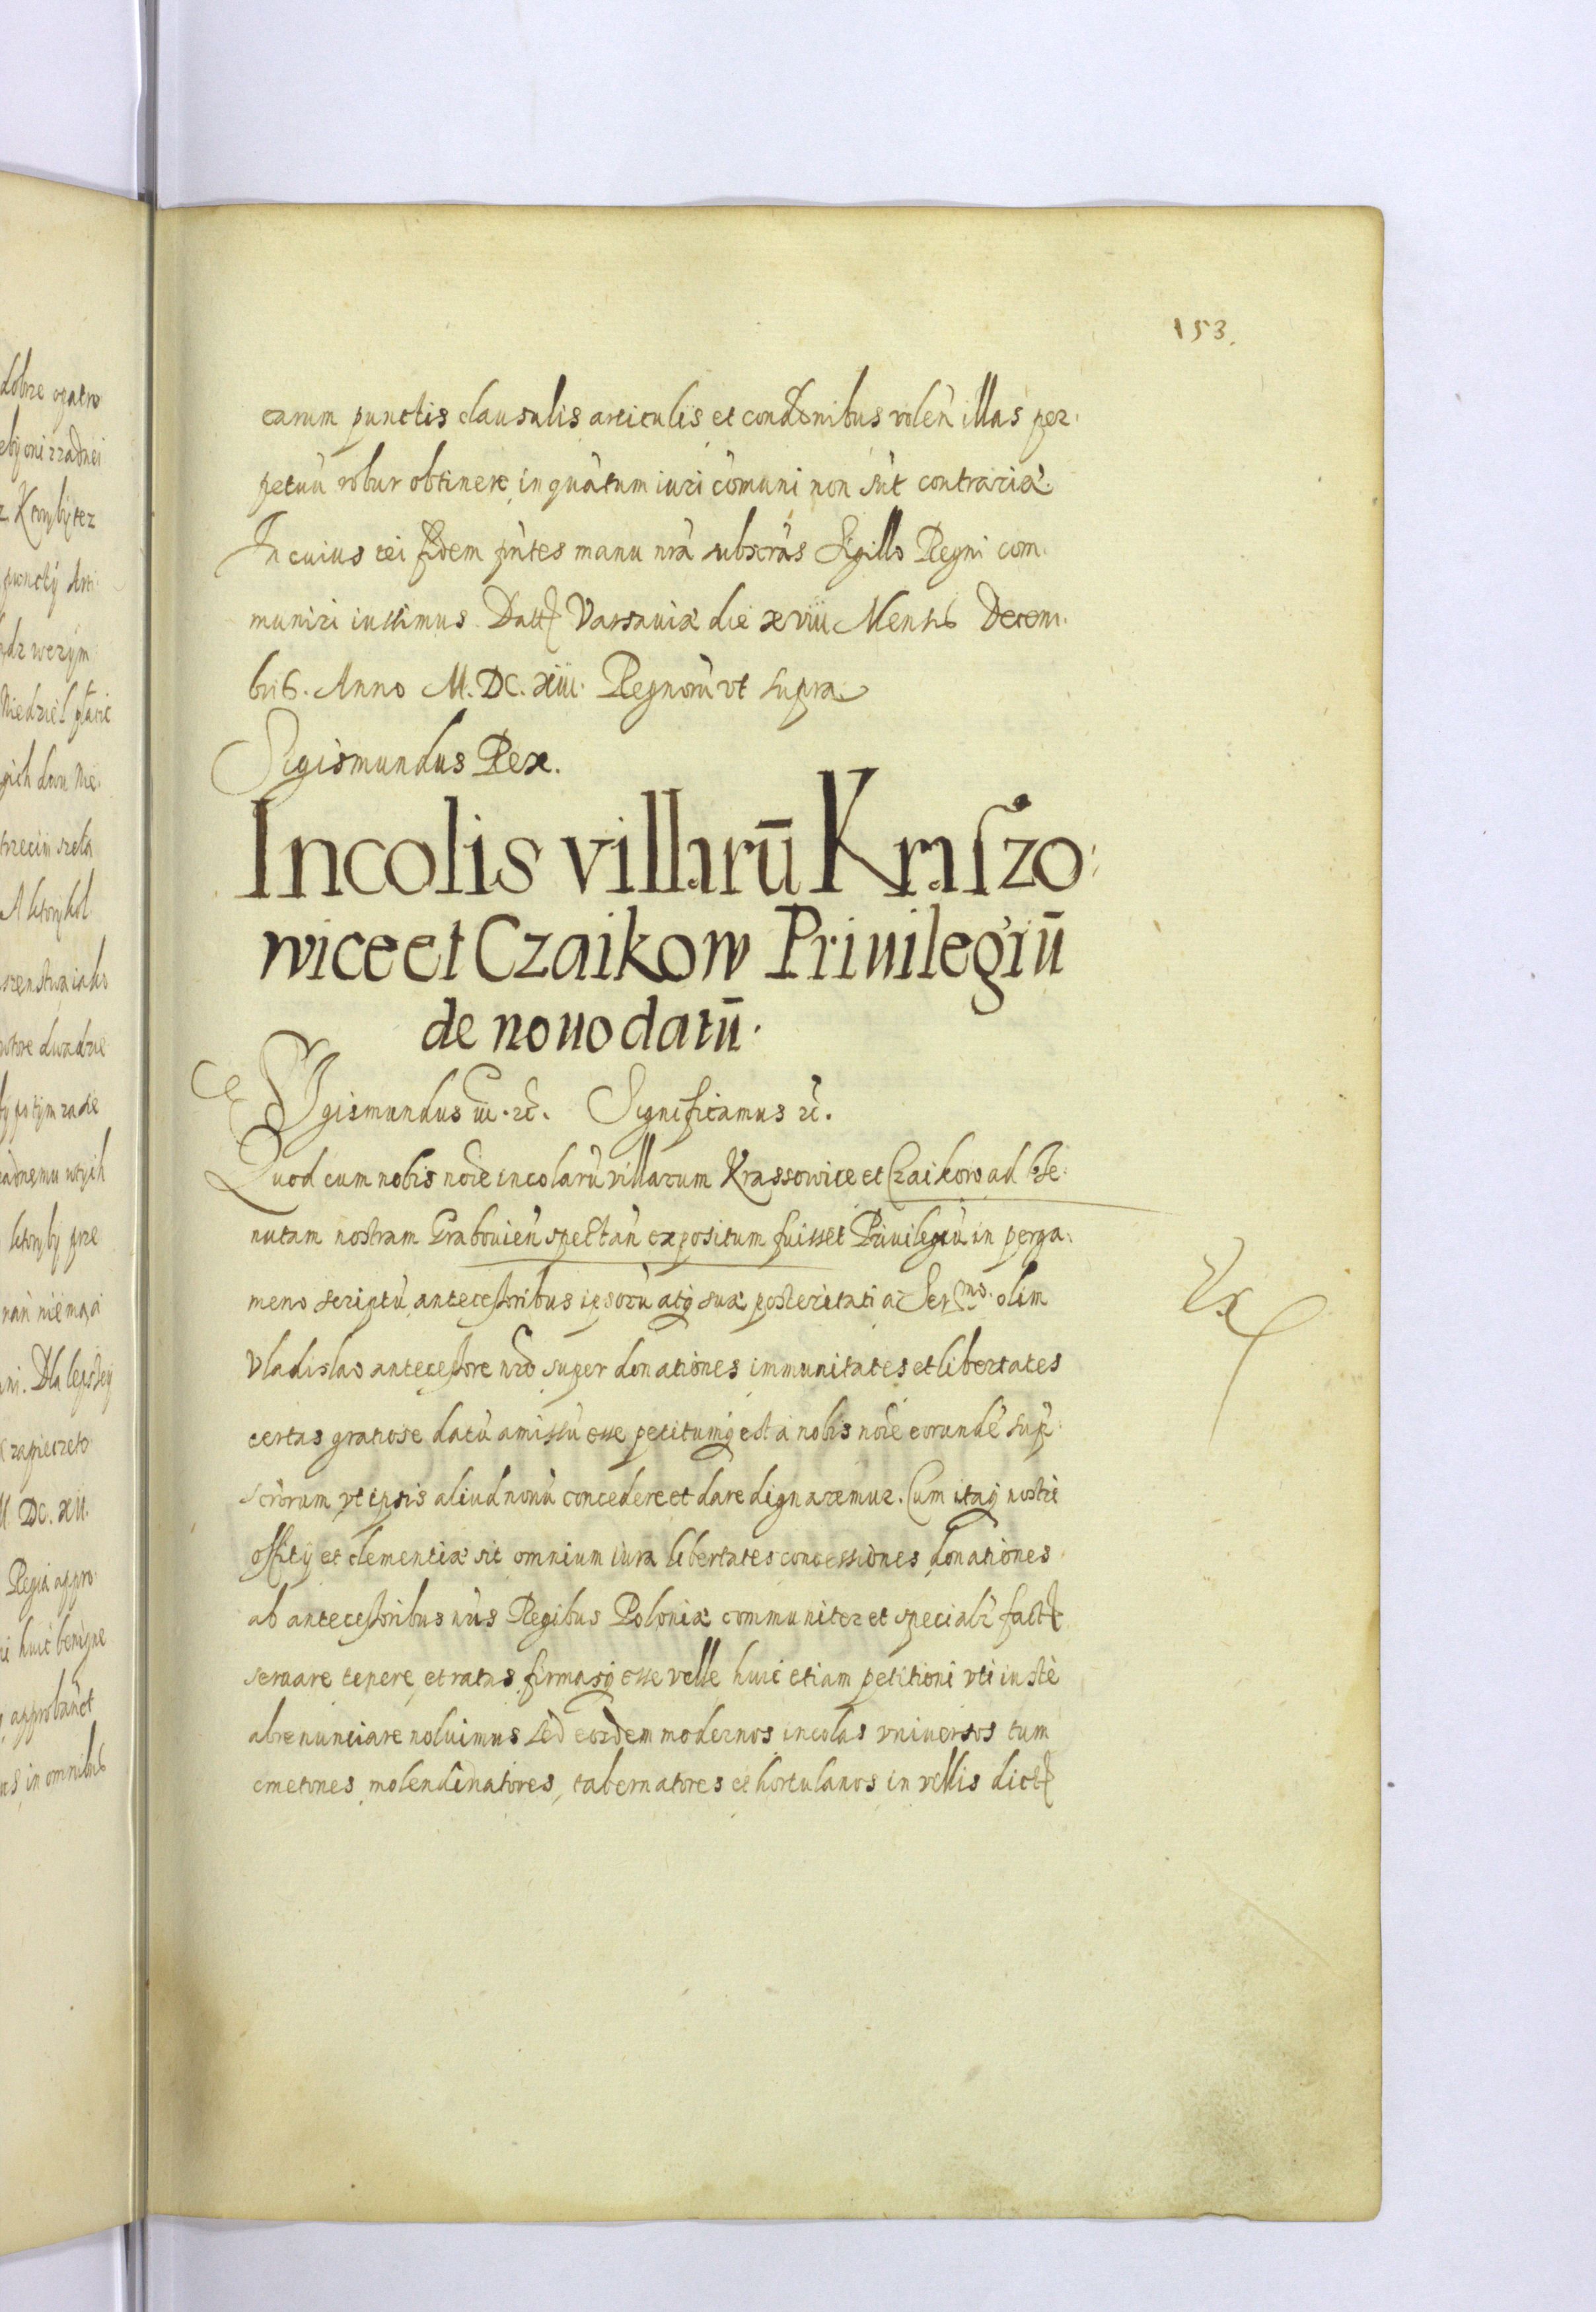 153.
earum punctis clausulis articulis et condōnibus volen̄ illas per
petuū robur obtinere in quātum iuri cōmuni non sūt contrariæ.
In cuius rei fidem pn̄tes manu nr̄a subscr̄as Sigillo Regni com
muniri iussimus Datt Varsauiæ die xviii Mensis Decem
bris. Anno M.DC.XIII. Regnorū vt supra
Sigismundus Rex.
Incolis villarū Kraſzo
wice et Czaikow Priuilegiū
de nouo datū.
Sigismundus iii. etc̄. Significamus etc̄.
Quod cum nobis noīe incolarū villarum Krassowice et Czaikow ad Te
nutam nostram Grabouien̄ spectan̄ expositum fuisset Priuilegiū in perga
meno scriptū antecessoribus ipsorū atq suæ posteritati a Sermo. olim
Vladislao antecessore nr̄o super donationes immunitates et libertates
certas gratiose datū amissū esse petitumq est a nobis noīe eorundē sup
vt ipsis aliud nouū concedere et dare dignaremur. Cum itaq nostri
officij et clementiæ sit omnium iura libertates concessiones donationes
ab antecessoribus nr̄is Regibus Poloniæ communiter et specialr̄ fact
seruare tenere et ratas firmasq esse velle huic etiam petitioni vti iustè
abrenunciare noluimus sed eosdem modernos incolas vniuersos tum
cmetones molendinatores, tabernatores et hortulanos in villis dict
dobrze opatro
Ktoryby tez
puncty Arti
A ktory kol
ktoryby prze
M. DC. XII.
Regia appro
huic benigne
approbanct
in omnibus